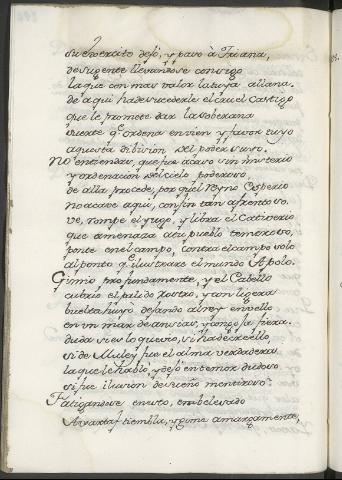 su exercito dexó, y pasó à Triana,
de su gente llevandose consigo
la que con mas valor la tuya allana.
de aqui ha de sucederle el cruel castigo
que le promete dar la soberana
suerte q.e ordena envien, y favor tuyo
aquesta division del poder suyo.
No entiendas, que fue acaso sin misterio
y ordenacion del cielo poderoso,
de alla procede, por q.e el Reyno Hesperio
no acave aqui, con fin tan afrentoso.
ve, rompe el yugo, y libra el Cativerio
que amenaza a tu pueblo temeroso,
ponte en el campo, contra el campo solo
al punto q.e ilustrare el mundo Apolo.
Gimio profundamente, y el Cabello
cubrio el palido rostro, y con ligera
buelta huyó dexando al rey en vello
en un mar de ansias, y congoja fiera.
duda si es lo que vio, si ha de creello,
si de Muley fue el alma verdadera
la que le habló, y dexó en temor dudoso
si fue ilusion de sueño mentiroso.
Fatigandose en esto, embelesado
Araxta, tiembla, y gime amargamente,